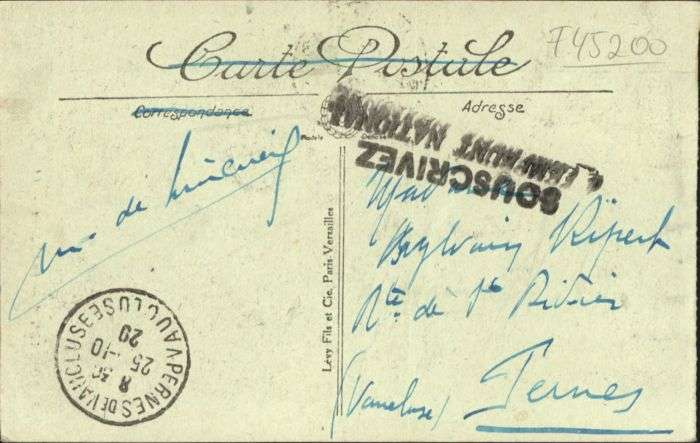 745200
Carte Postale
Correspondance
Adresse
SOUSCRIVEZ
EMPRUNT NATIONAL
de
Lévy Fils et Cie, Paris-Versailles
Sylvain Ripert
Rte de
Pernes
(Vaucluse)
PERNES DE VAUCLUSE
VAUCLUSE
8 30
25 -10
20